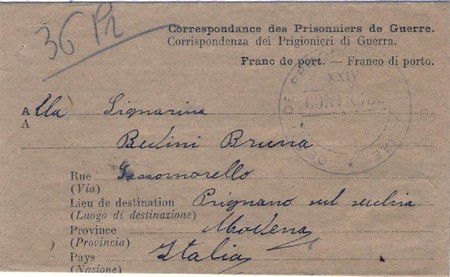 36 Pr
Correspondance des Prisonniers de Guerre.
Corrispondenza dei Prigionieri di Guerra.
Franc de port. — Franco di porto.
XXIV
CONTROLE
A lla Signorina
A
Bedini Bruna
Rue Sassomorello
(Via)
Lieu de destination Prignano sul secchia
(Luogo di destinazione)
Province Modena
(Provincia)
Pays Italia
(Nazione)